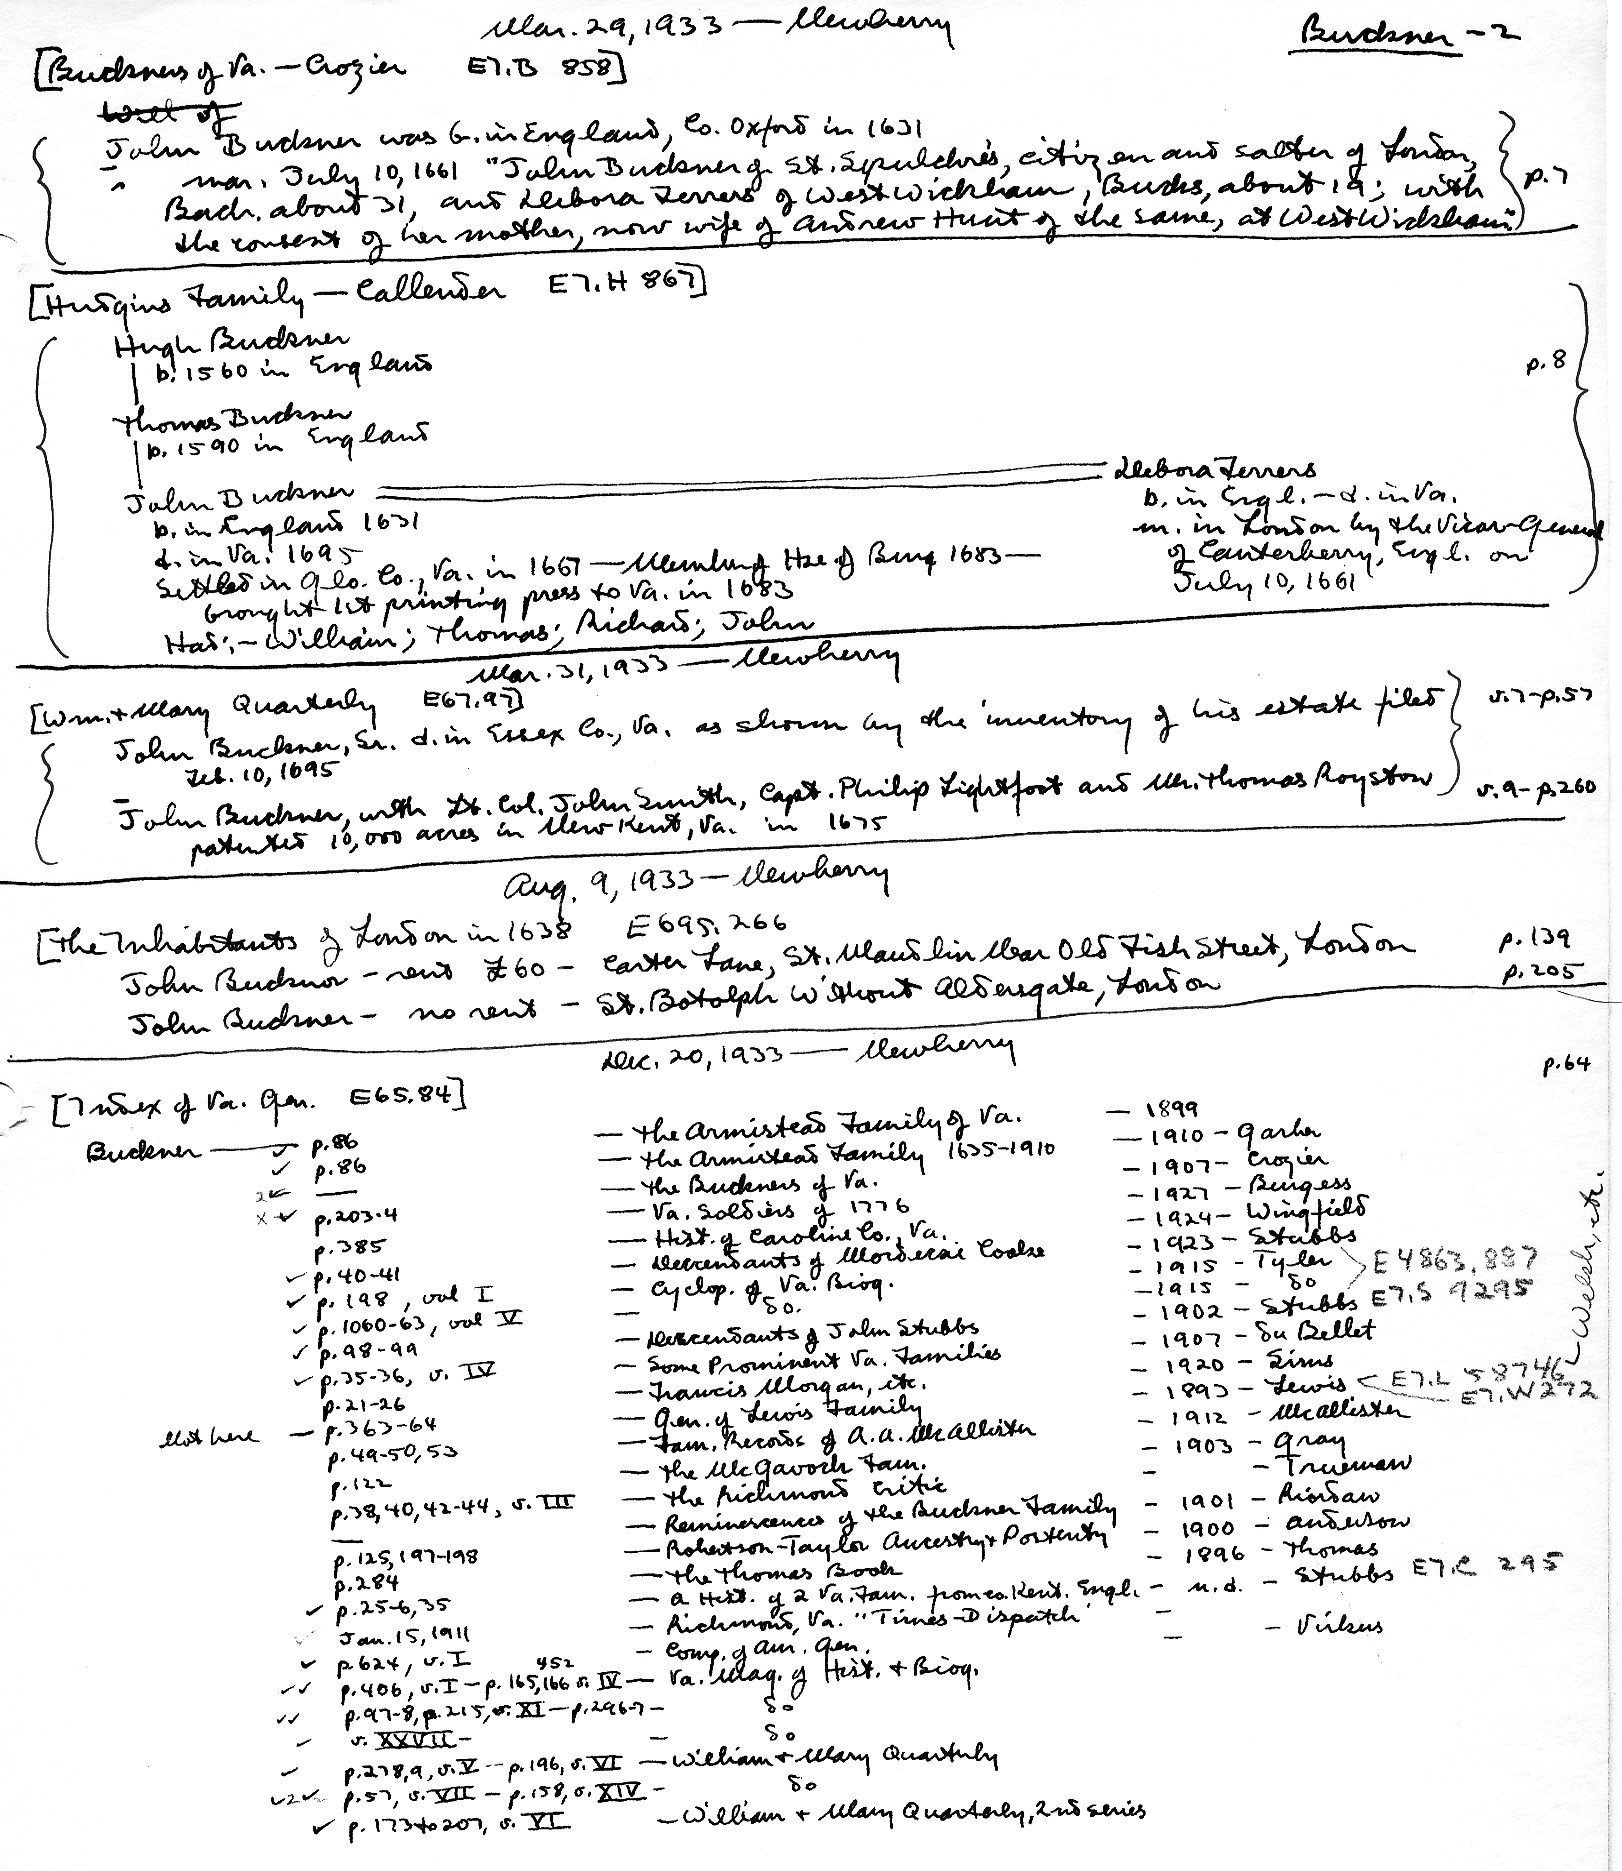 Mar. 29, 1933 — Newberry
Buckner - 2
[Buckners of Va. — Crozier E7.B 858]
Will of
John Buckner was b. in England, Co. Oxford in 1631
" mar. July 10, 1661 "John Buckner of St. Sepulchre's, citizen and salter of London,
Bach. about 31, and Debora Ferrers of West Wickham, Bucks, about 19; with p. 7
the consent of her mother, now wife of Andrew Hunt of the same, at West Wickham"
[Hudgins Family — Callender E7.H 867]
Hugh Buckner
b. 1560 in England p. 8
Thomas Buckner
b. 1590 in England
John Buckner ═ Debora Ferrers
b. in England 1631 b. in Engl. - d. in Va.
d. in Va. 1695 m. in London by the Vicar-General
Settled in Glo. Co., Va. in 1667 — Member of Hse of Burg 1683 — of Canterberry, Engl. on
brought 1st printing press to Va. in 1683 July 10, 1661
Had:- William; Thomas; Richard; John
Mar. 31, 1933 — Newberry
[Wm. + Mary Quarterly E67.97]
John Buckner, Sr. d. in Essex Co., Va. as shown by the inventory of his estate filed v.7-p.57
Feb. 10, 1695
John Buckner, with Lt. Col. John Smith, Capt. Philip Lightfoot and Mr. Thomas Royston v.9-p.260
patented 10,000 acres in New Kent, Va. in 1675
Aug. 9, 1933 — Newberry
[The Inhabitants of London in 1638 E695.266
John Bucknor - rent £60 - Carter Lane, St. Maudlin Near Old Fish Street, London p. 139
John Buckner - no rent - St. Botolph Without Aldersgate, London p. 205
Dec. 20, 1933 — Newberry
p. 64
[Index of Va. Gen. E65.84]
Buckner — ✓ p. 86 — The Armistead Family of Va. — 1899
✓ p. 86 — The Armistead Family 1635-1910 — 1910 - Garber
— — The Buckners of Va. — 1907 - Crozier
x ✓ p. 203-4 — Va. Soldiers of 1776 — 1927 - Burgess
p. 385 — Hist. of Caroline Co., Va. — 1924 - Wingfield
✓ p. 40-41 — Descendants of Mordecai Cooke — 1923 - Stubbs E 4863.887
✓ p. 198, vol I — Cyclop. of Va. Biog. — 1915 - Tyler
✓ p. 1060-63, vol V — do. — 1915 - do
✓ p. 98-99 — Descendants of John Stubbs — 1902 - Stubbs E7.S 9295
✓ p. 35-36, v. IV — Some Prominent Va. Families — 1907 - du Bellet
p. 21-26 — Francis Morgan, etc. — 1920 - Sims
Not here — p. 363-64 — Gen. of Lewis Family — 1893 - Lewis E7.L 58746 Welsh, etc.
E7.W272
p. 49-50, 53 — Fam. Records of A. A. McAllister — 1912 - McAllister
p. 122 — The McGavock Fam. — 1903 - Gray
p. 38, 40, 42-44, v. III — The Richmond Critic - - Trueman
— — Reminescences of the Buckner Family - 1901 - Riordan
p. 125, 197-198 — Robertson-Taylor Ancestry + Posterity - 1900 - Anderson
p. 284 — The Thomas Book - 1896 - Thomas
✓ p. 25-6, 35 — A Hist. of 2 Va. Fam. from co. Kent. Engl. - n.d. - Stubbs E7.C 295
✓ Jan. 15, 1911 — Richmond, Va. "Times-Dispatch" -
✓ p 624, v. I - Comp. of Am. Gen. - - Virkus
452
✓✓ p. 406, v. I — p. 165, 166 v. IV — Va. Mag. of Hist. + Biog.
✓✓ p. 97-8, p. 215, v. XI — p. 296-7 - do
✓ v. XXVII - - do
✓ p. 278, 9, v. V — p. 196, v. VI — William + Mary Quarterly
✓2✓ p. 57, v. VII — p. 158, v. XIV - do
✓ p. 173 to 207, v. VI - William + Mary Quarterly, 2nd series